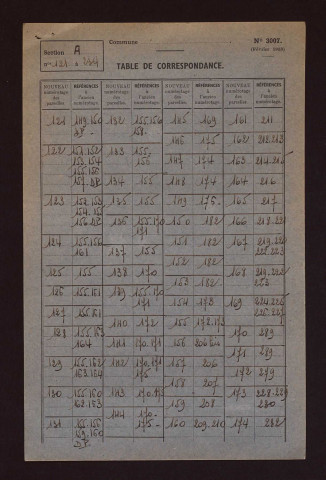 Commune
N° 3097.
Section A
n° 121 à
TABLE DE CORRESPONDANCE.
NOUVEAU numérotage des parcelles. RÉFÉRENCES à l'ancien numérotage NOUVEAU numérotage des parcelles. RÉFÉRENCES à l'ancien numérotage NOUVEAU numérotage des parcelles. RÉFÉRENCES à l'ancien numérotage NOUVEAU numérotage des parcelles. RÉFÉRENCES à l'ancien numérotage
121 149.150 132 155.156 145 169 161 211
158 146 175 162 212.213
122 151.152 133 155
153.154 155 147 174 163 214.215
155.156 134 155 148 174 164 216
157
123 152.153 135 155 149 175 165 217
154.155 136 155.170 150 182 166 218
156 171
124 155.156 137 155 151 182 167
161 152 182
125 155 138 170 168
126 155.161 139 155.170 153 182
171 154 173 169 224.225
127 155.161 140 172 155 172.173 226.227
128 155.163 170 289
164 141 170.171 156 206 171 289
129 155.162 142 170.171 157 206
163.164 175 158 207 172 279
130 155.160 143 170.171 173 228.229
162.163 159 208 230
144 170
131 155.156 175 160 209.210 174 232
159.160